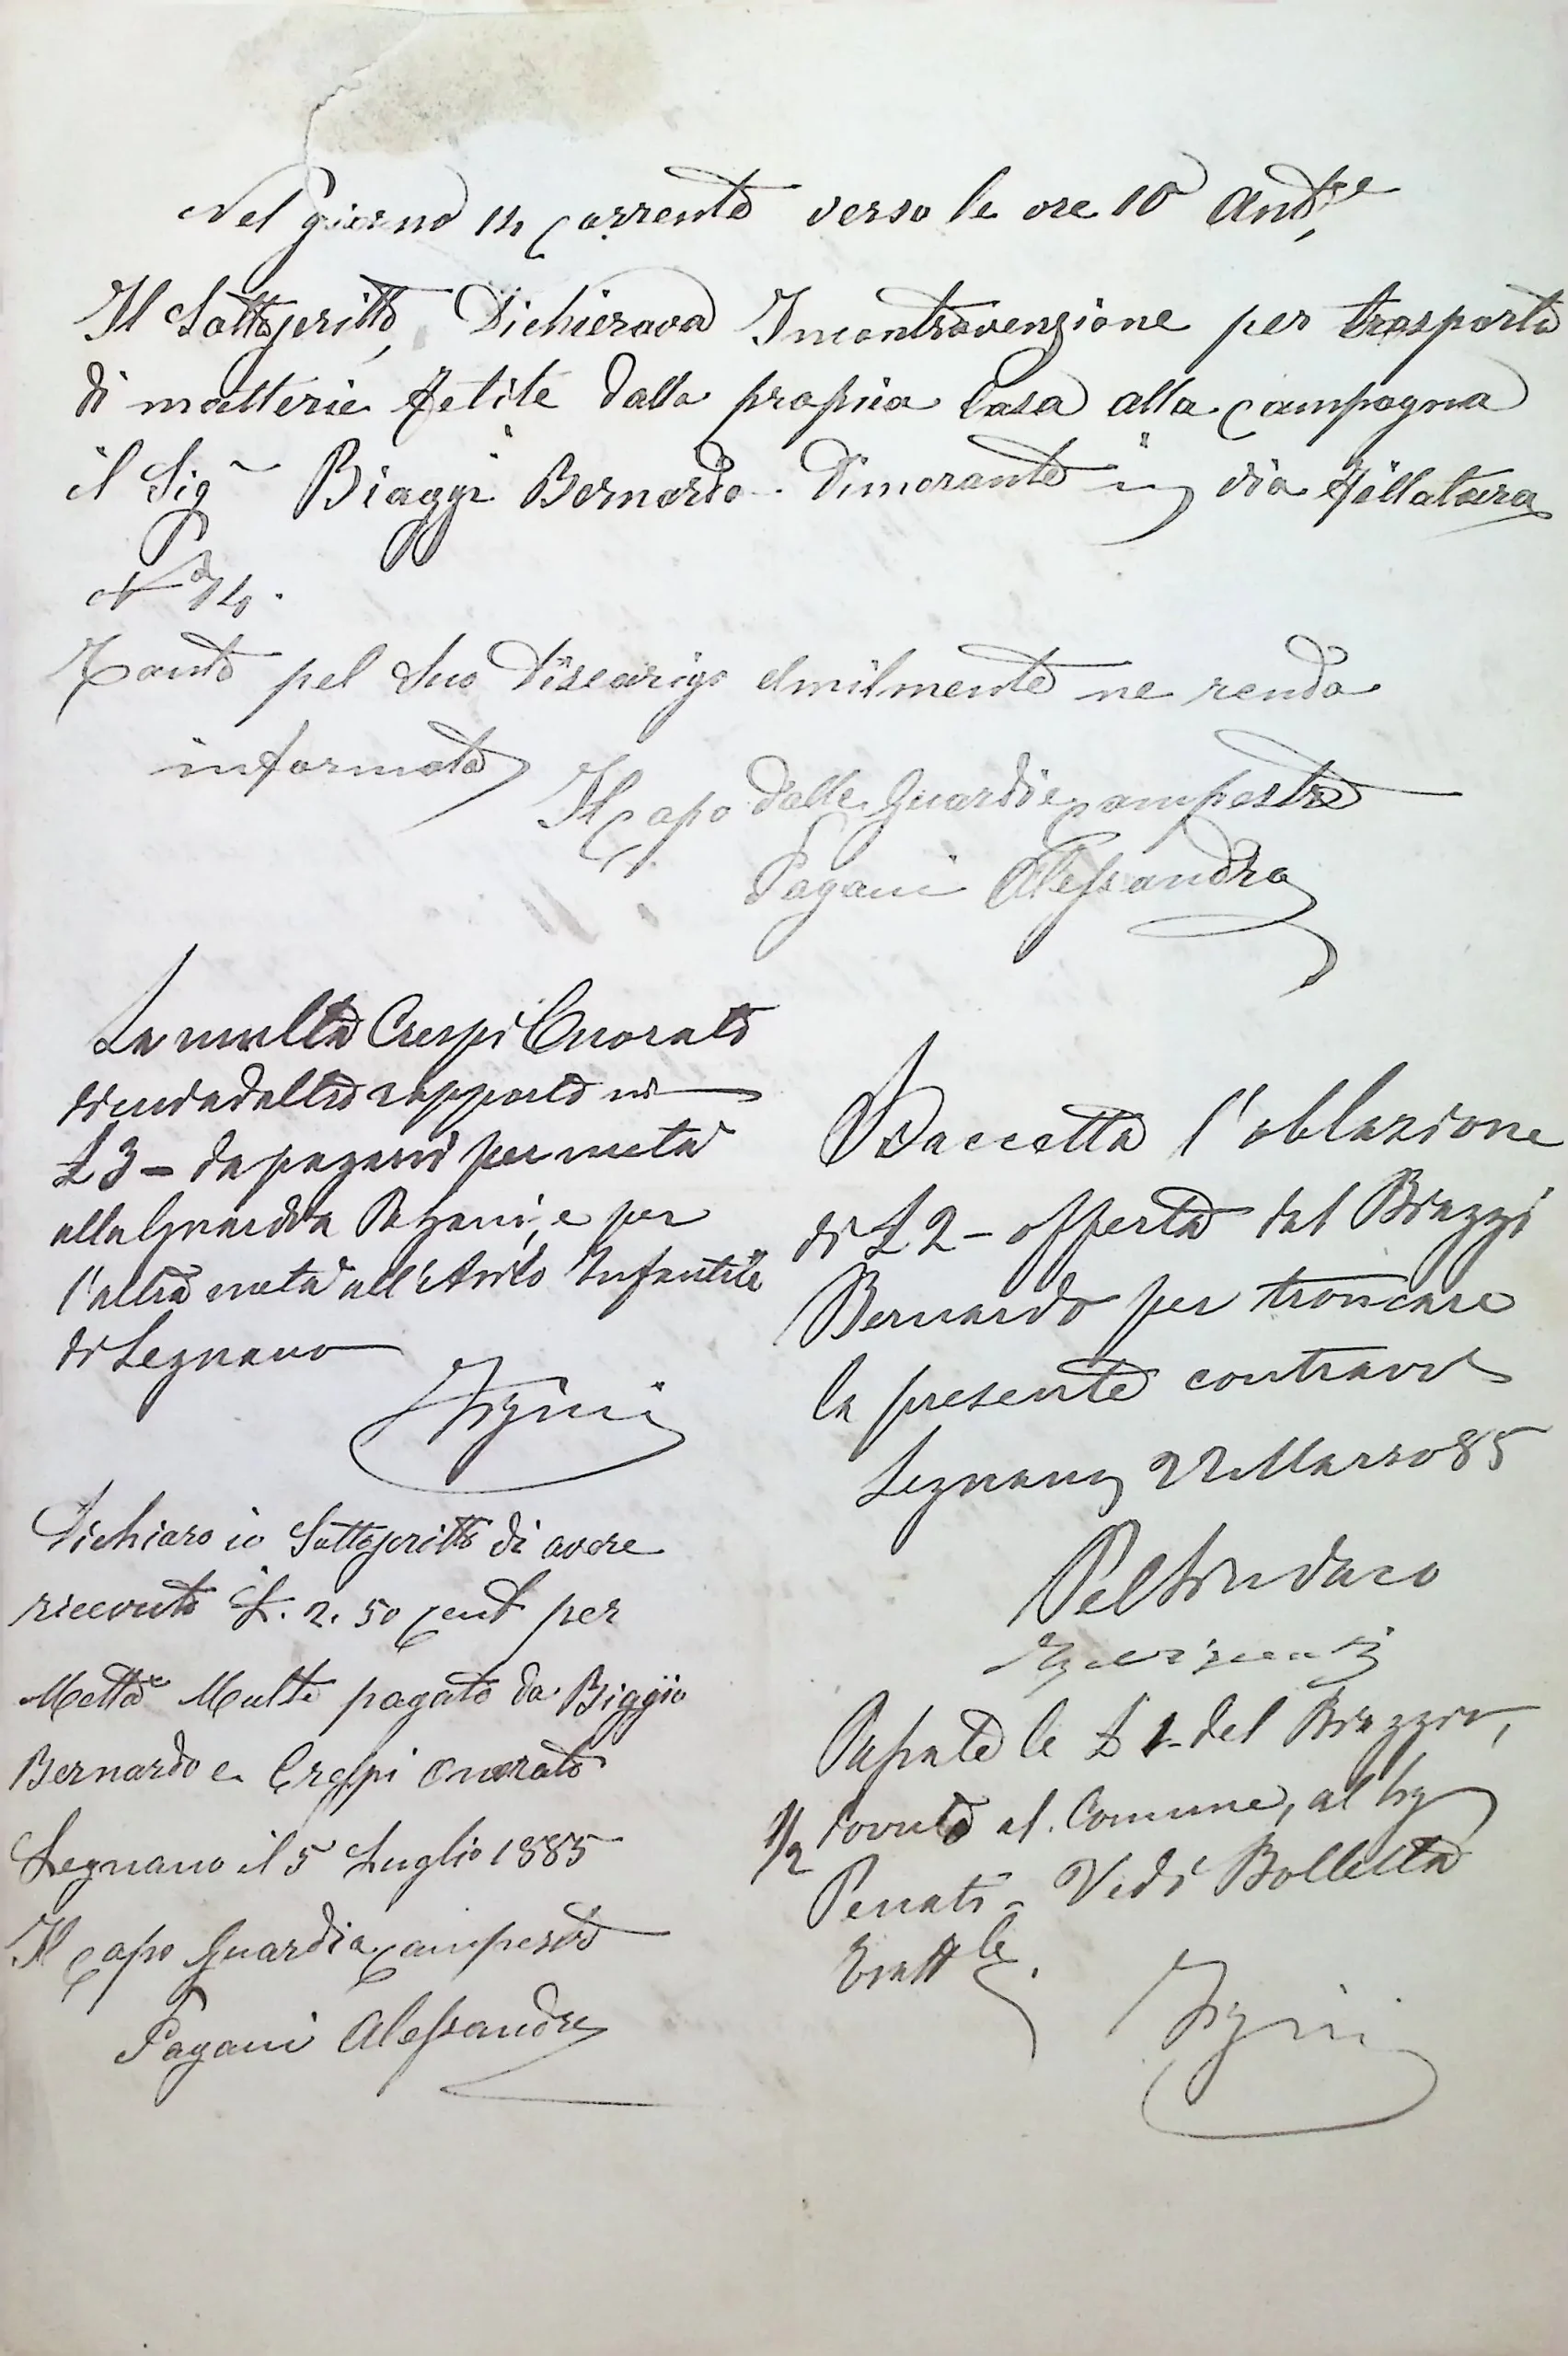 Nel giorno 14 corrente verso le ore 10 Ant.e
Il Sottoscritto, Dichierava Incontravenzione per trasporto
di matterie fetite dalla propria Casa alla campagna
il Sig.r Biaggi Bernardo. Dimorante in via Fillatura
N.o 14.
Tanto pel Suo Discarigo Umilmente ne renda
informata
Il Capo delle Guardie Campestre
Pagani Alessandro
La multa Crespi Onorato
di cui ad altro rapporto
£ 3 - da pagarsi per metà
alla Guardia Pagani, e per
l'altra metà all'Asilo Infantile
di Legnano
Dichiaro io Sottoscritto di avere
riccevuto £. 2. 50 Cent per
Metta Multe pagato da Biggio
Bernardo e Crespi Onorato
Legnano il 5 Luglio 1885
Il Capo Guardia Campestre
Pagani Alessandro
Si accetta l'oblazione
di £ 2 - offerta dal Biaggi
Bernardo per troncare
la presente contravv.e
Legnano 22 Marzo 85
Pel Sindaco
le £ 1 - del Biaggio,
1/2 dovuto al Comune, al Sig
Penati - Vedi Bolletta